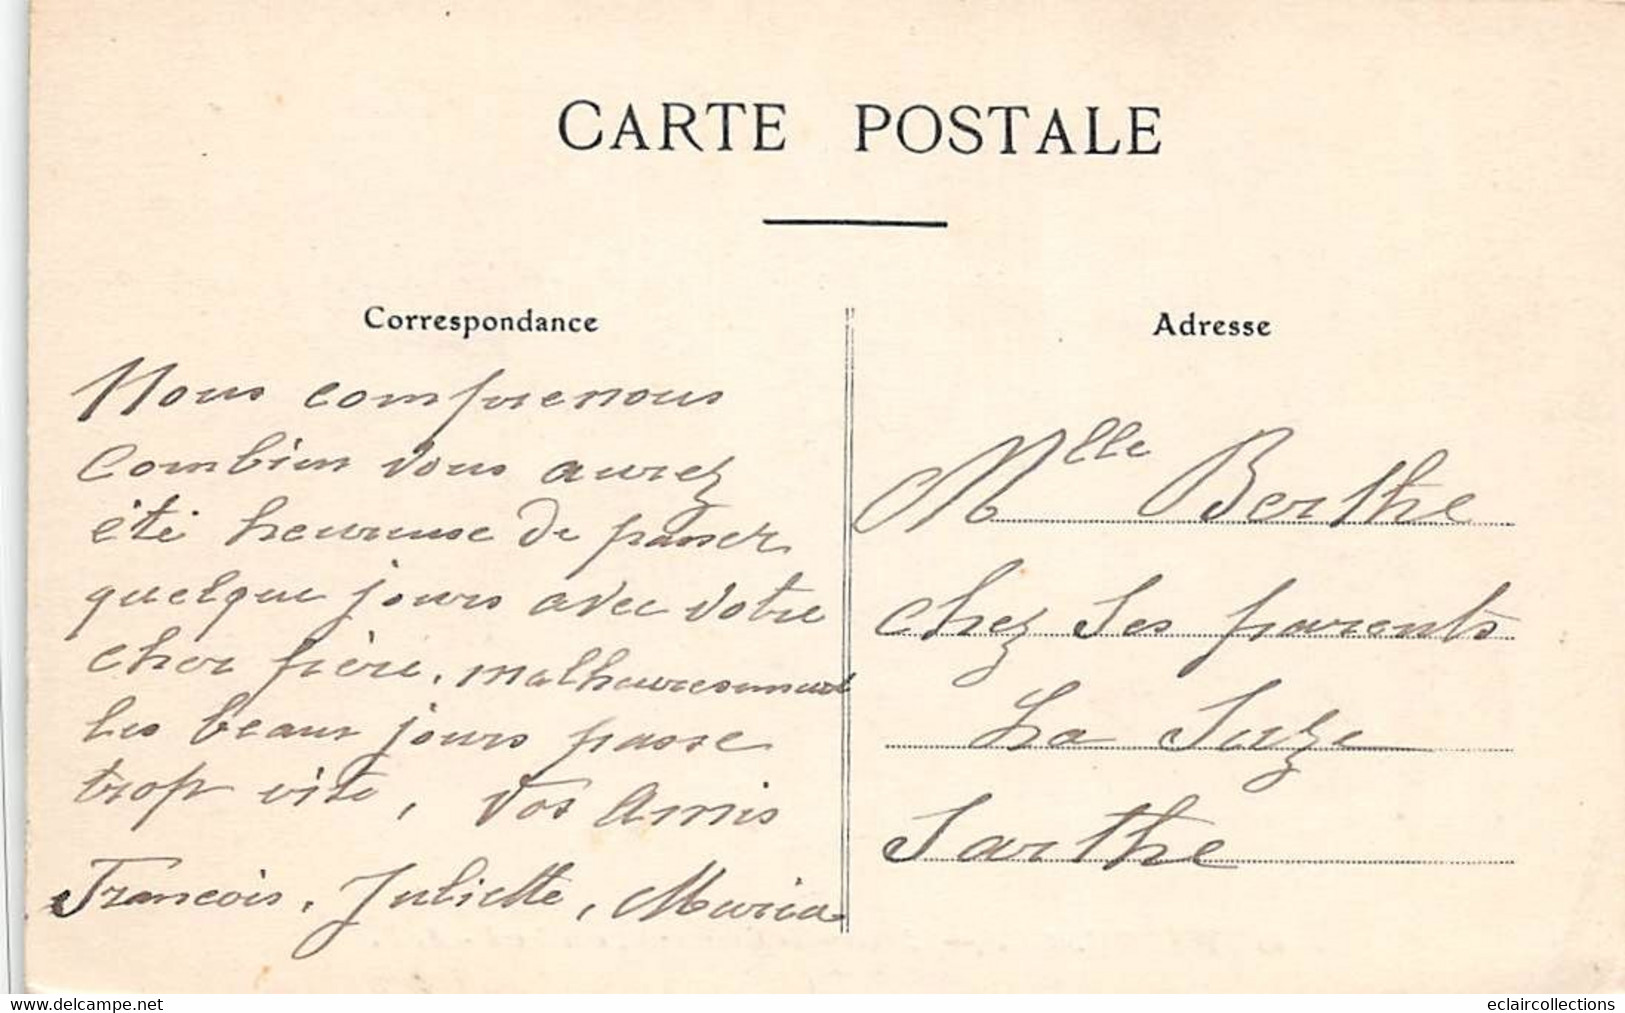 CARTE POSTALE
Correspondance
Nous comprenons
combien vous aurez
été heureuse de passer
quelque jours avec votre
cher frère, malheureusement
les beaux jours passe
trop vite, Vos Amis
François, Juliette, Maria
Adresse
Mlle Berthe
chez ses parents
La Suze
Sarthe
www.delcampe.net
eclaircollections